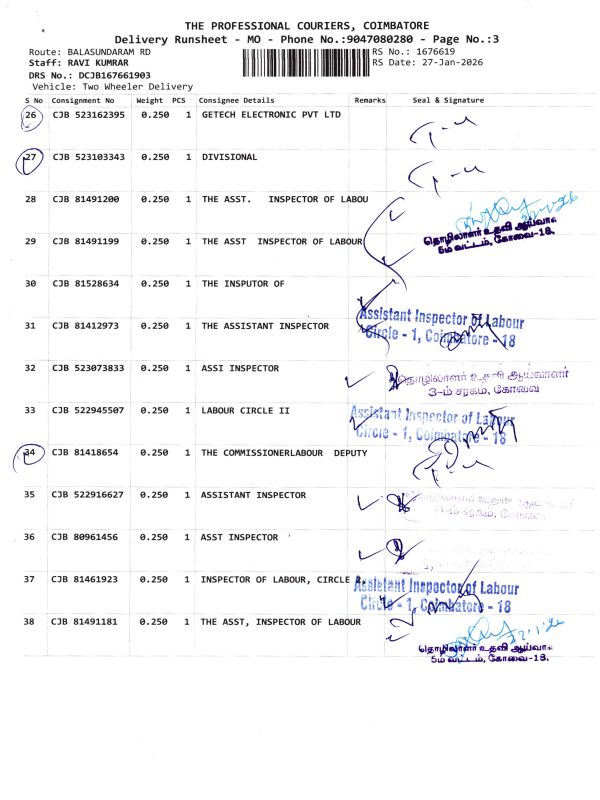 THE PROFESSIONAL COURIERS, COIMBATORE
Delivery Runsheet - MO - Phone No.:9047080280 - Page No.:3
Route: BALASUNDARAM RD RS No.: 1676619
Staff: RAVI KUMRAR RS Date: 27-Jan-2026
DRS No.: DCJB167661903
Vehicle: Two Wheeler Delivery
S No Consignment No Weight PCS Consignee Details Remarks Seal & Signature
26 CJB 523162395 0.250 1 GETECH ELECTRONIC PVT LTD
27 CJB 523103343 0.250 1 DIVISIONAL
28 CJB 81491200 0.250 1 THE ASST. INSPECTOR OF LABOU
29 CJB 81491199 0.250 1 THE ASST INSPECTOR OF LABOUR
தொழிலாளர் உதவி ஆய்வா
5ம் வட்டம், கோவை-18.
30 CJB 81528634 0.250 1 THE INSPUTOR OF
31 CJB 81412973 0.250 1 THE ASSISTANT INSPECTOR
Assistant Inspector of Labour
Circle - 1, Coimbatore - 18
32 CJB 523073833 0.250 1 ASSI INSPECTOR
தொழிலாளர் உதவி ஆய்வாளர்
3-ம் சரகம், கோவை
33 CJB 522945507 0.250 1 LABOUR CIRCLE II
Assistant Inspector of Labour
Circle - 1, Coimbatore - 18
34 CJB 81418654 0.250 1 THE COMMISSIONERLABOUR DEPUTY
35 CJB 522916627 0.250 1 ASSISTANT INSPECTOR
36 CJB 80961456 0.250 1 ASST INSPECTOR
37 CJB 81461923 0.250 1 INSPECTOR OF LABOUR, CIRCLE
Assistant Inspector of Labour
Circle - 1, Coimbatore - 18
38 CJB 81491181 0.250 1 THE ASST, INSPECTOR OF LABOUR
தொழிலாளர் உதவி ஆய்வா
5ம் வட்டம், கோவை-18.